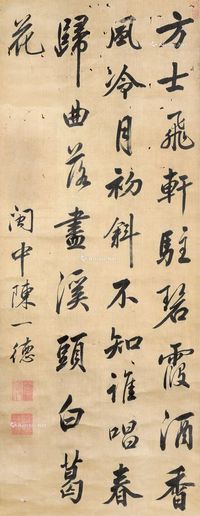 方士飛軒駐碧霞酒香
風冷月初斜不知誰唱春
歸曲落盡溪頭白葛
花
閩中陳一德